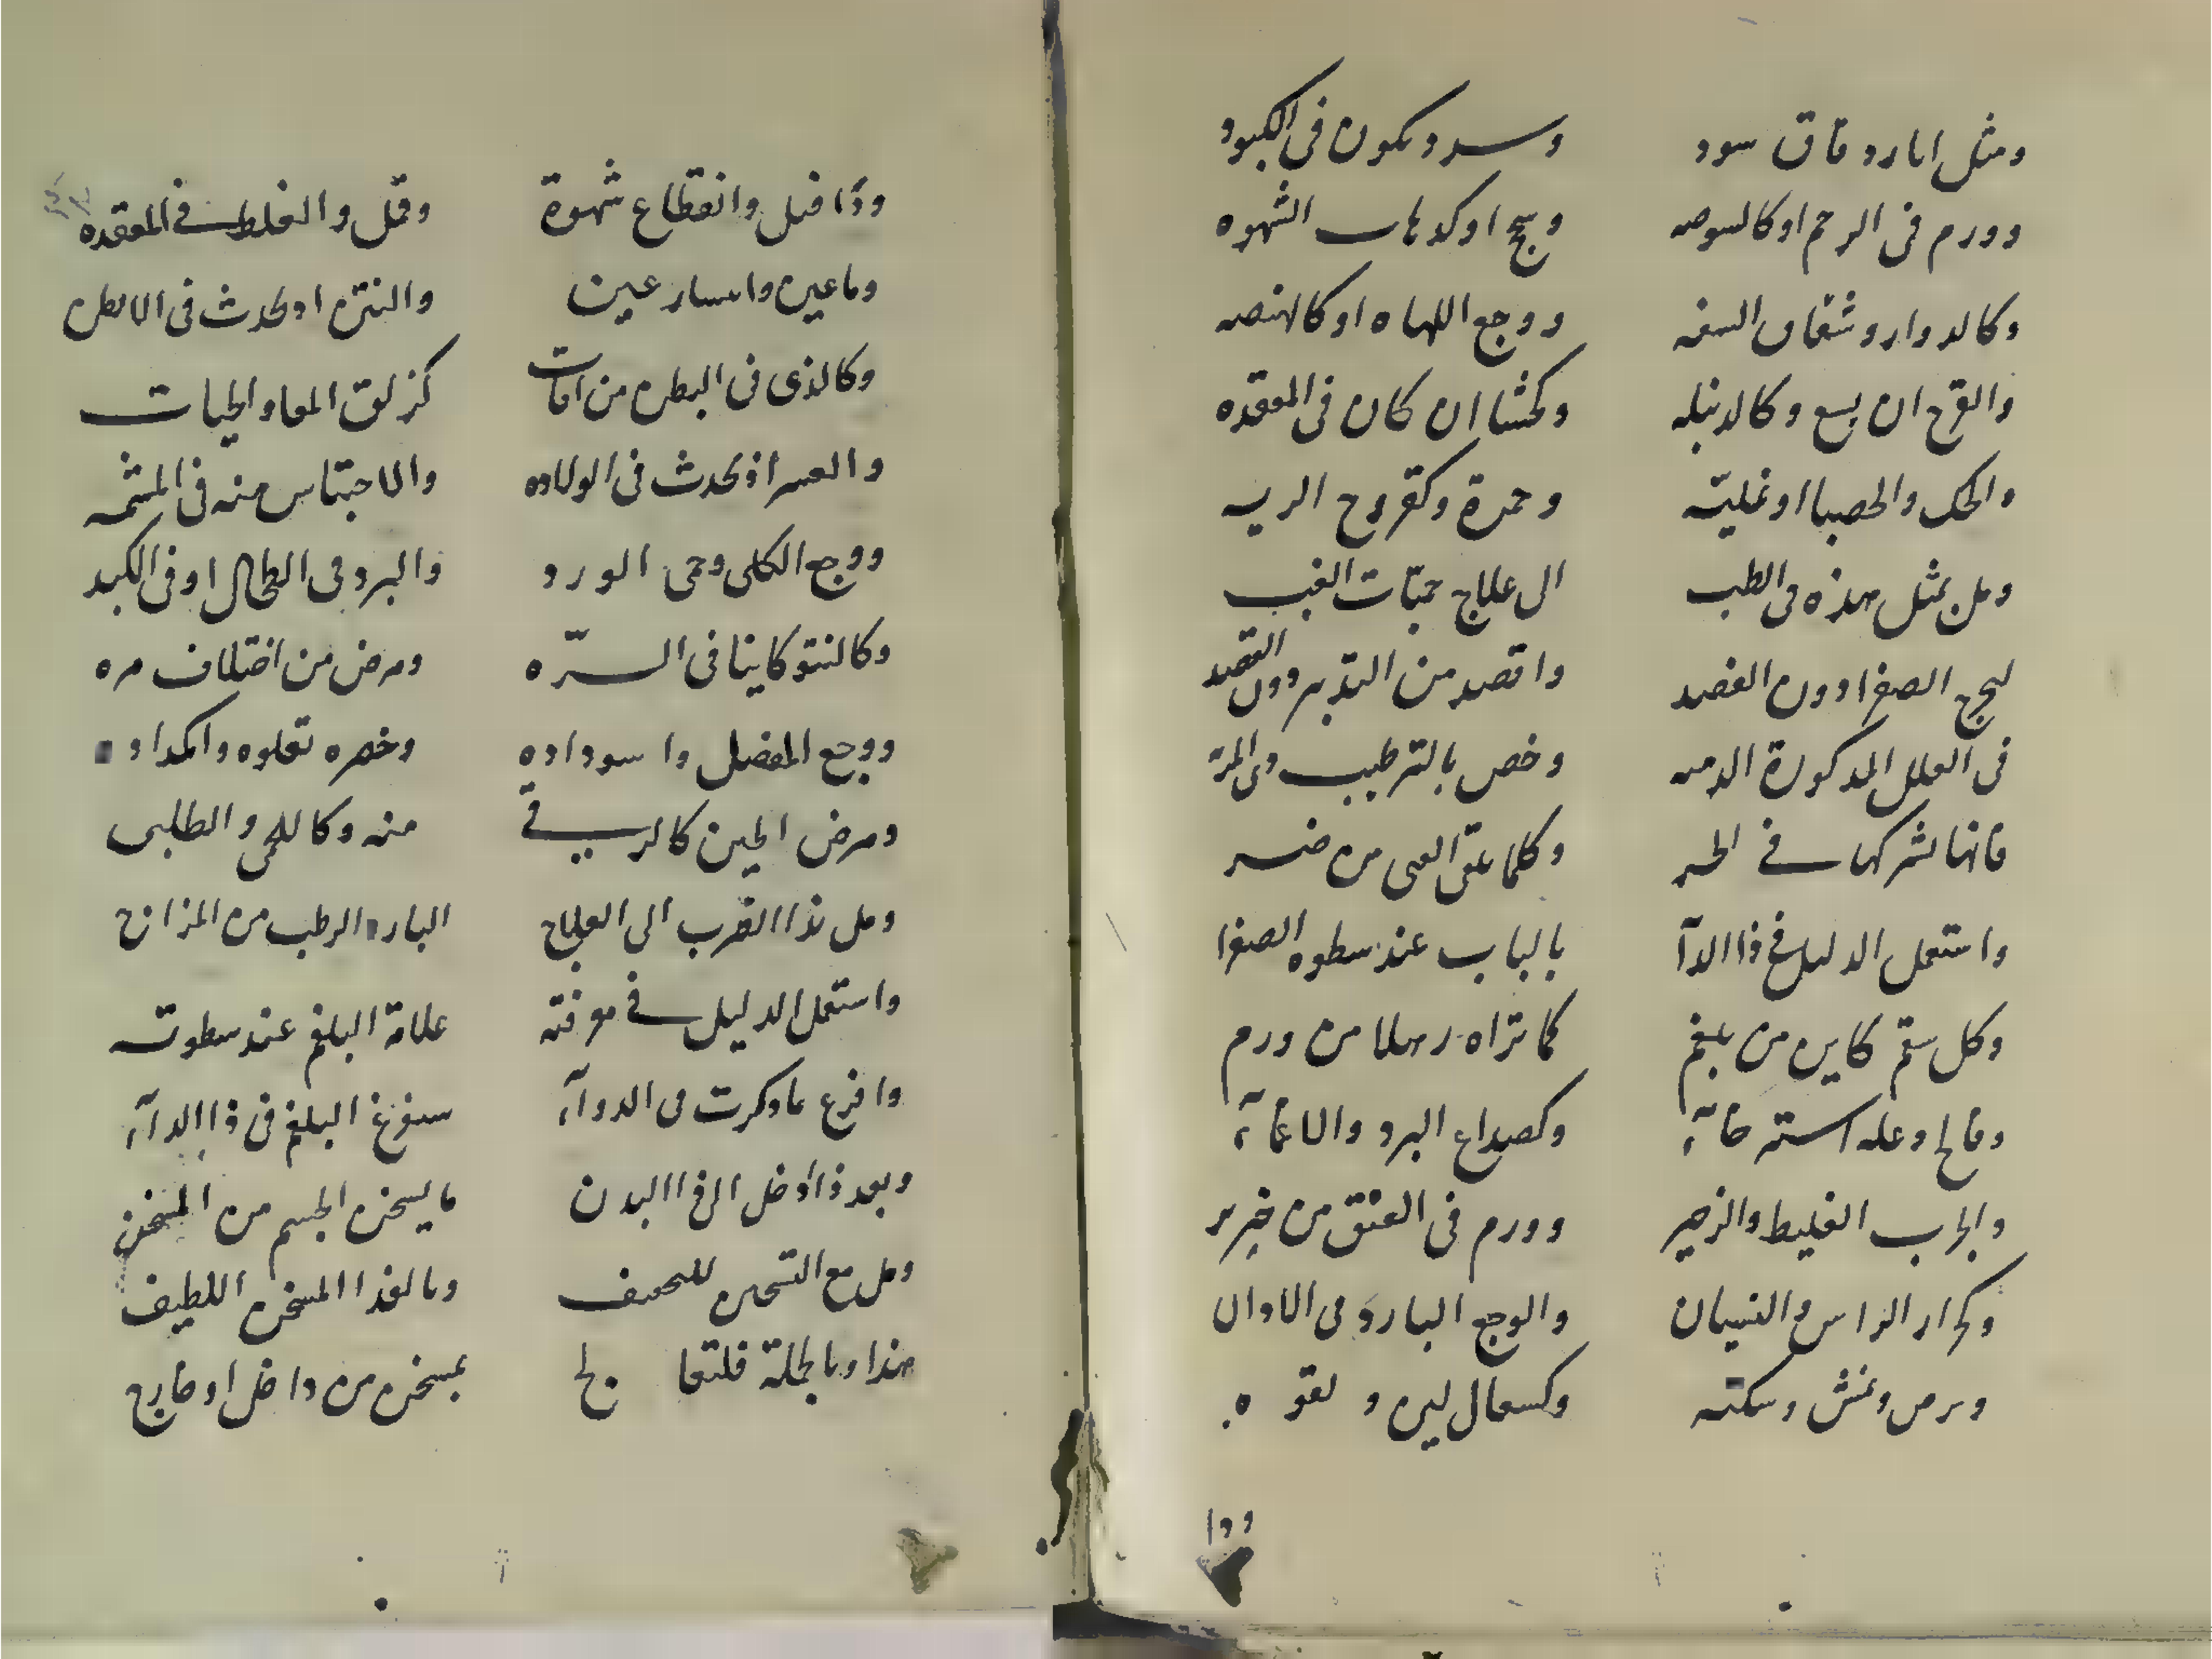 ومثل اىارد قاق سود وسدد ىكون فى الكبود
وورم فى الرحم او كالبوصه وسحج او كذهاب الشهوه
وكالدوار وشقاق السفه ووجع اللهاه او كالهىصه
والقرح ان يسع وكالدبيله وكحشا ان كان فى المعقده
والحك والحصبا او نمليته وحمرة وكقروح الريه
ومل بمثل هذه فى الطب الى علاج حميات الغب
ليخرج الصفرا دون الفصد واقصد من التدبير دون القصد
فى العلل المذكورة الدميه وخص بالترطيب ذى المرة
فانها تشركها فى الحر وكلما عن العمى من ضر
واستعمل الدليل فى ذا الدآ بالباب عند سطوه الصفرا
وكل سقم كاين من بلغم كما تراه رهلا من ورم
وفالج وعله استرخآء وكصداع البرد والاغمآء
والجرب الغليط والزحير وورم فى العنق من خنزير
وكرار الراس والنسيان والوجع البارد فى الاذان
وبرص ونمش وسكته وكسعال لين ولقوه
ودا
ودا فيل وانقطاع شهوة وقمل والغلط فى المعقده
وماعين وانسار عين والنتن اذ يحدث فى الابطن
وكالذى فى البطن من افات كزلق المعا والحيات
والعسر اذ يحدث فى الولاده والاحتباس منه فى المشمه
ووجع الكلى وحمى الورد والبرد فى الطحال او فى الكبد
وكالنتو كاينا فى السرّه ومرض من اختلاف مره
ووجع المفضل واسوداده وخصره تعلوه وامكداد
ومرض الجبن كالريقى منه وكاللحمى والطبلى
ومل بذا الضرب الى العلاج البارد الرطب من المزاج
واستعمل الدليل فى معرفته علامة البلغم عند سطوته
وافزع بما ذكرت من الدوآء ستفرغ البلغم فى ذا الدآء
وبعد ذا ادخل الى ذا البدن ما يسخن الجسم من المسخن
ومل مع التسخين للتجفيف وبالغذا المسخن اللطيف
هذا وبالجملة فلتعالج بمسخن من داخل او خارج